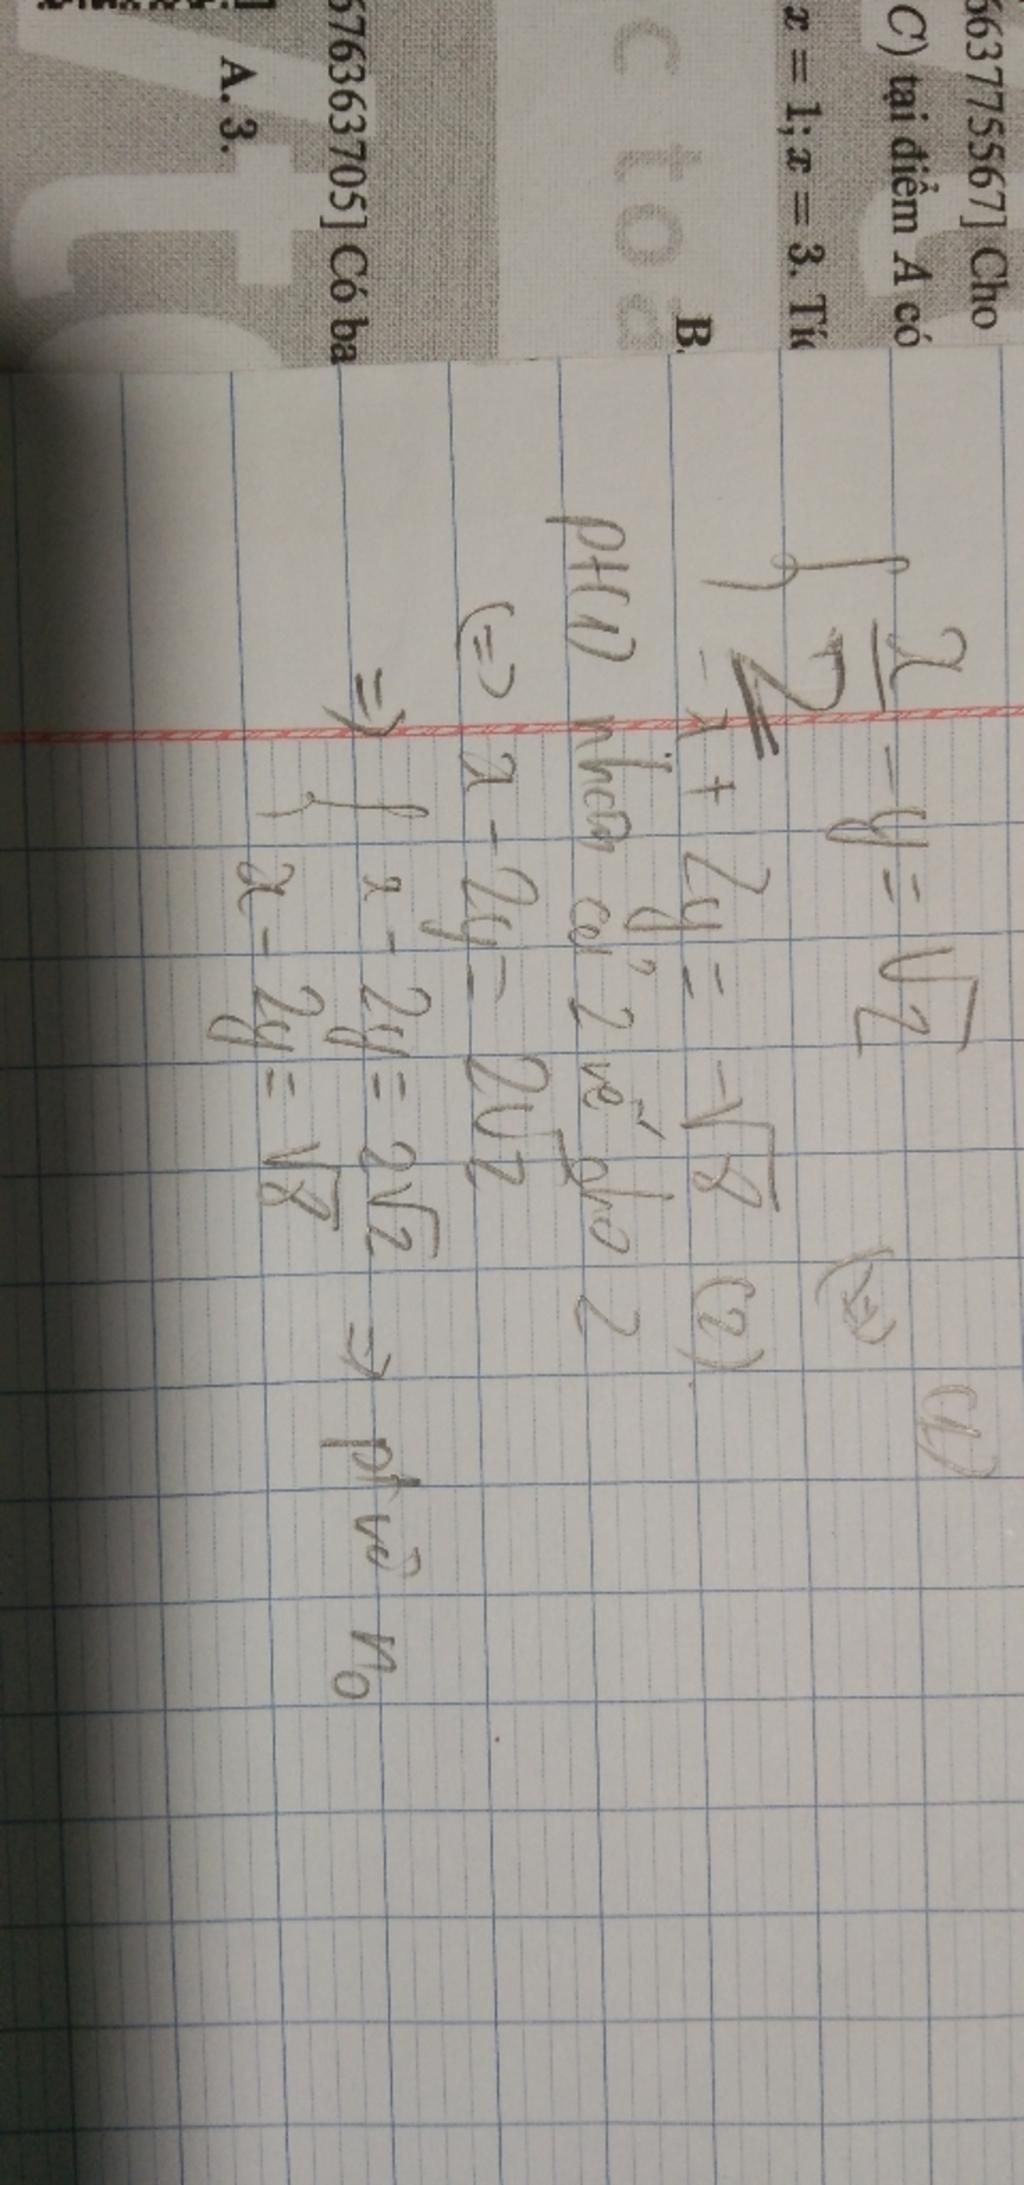 663775567] Cho
C) tại điểm A có
x = 1; x = 3. Tíc
B.
c t o á
676363705] Có ba
A. 3.
x/2 - y = √2 (1)
- x + 2y = -√8 (2)
pt(1) nhân cả 2 vế cho 2
(=) x - 2y = 2√2
=> { x - 2y = 2√2
x - 2y = √8 => pt vô n0